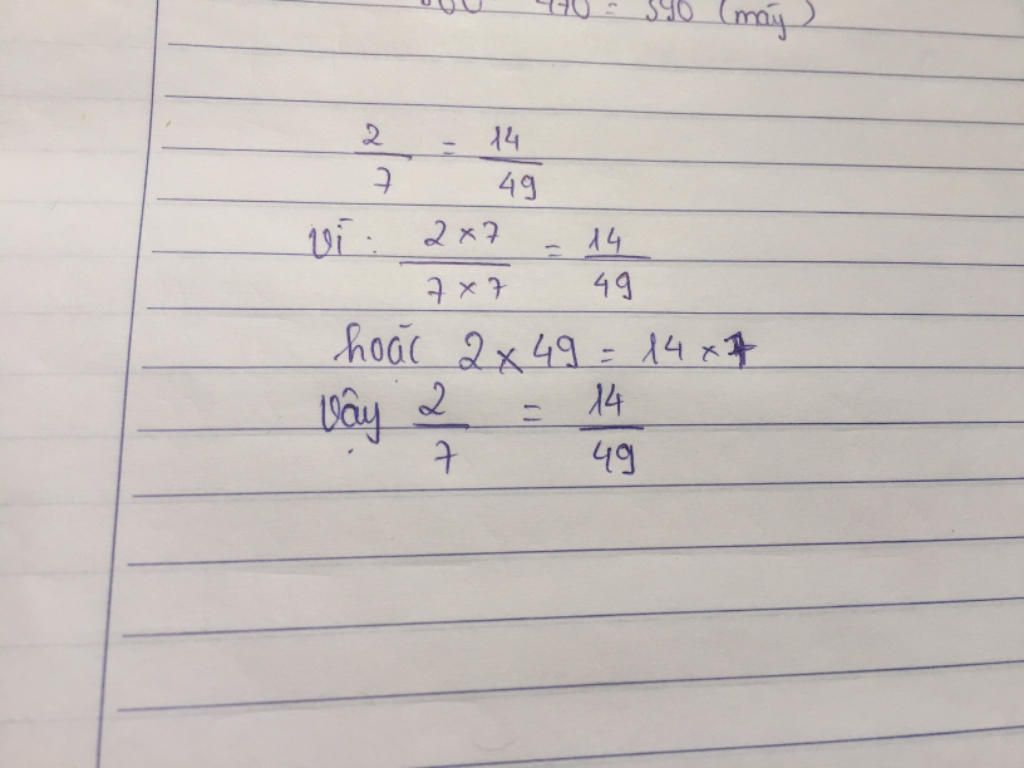 470 = 390 (máy)
2/7 = 14/49
Vì : 2 × 7 / 7 × 7 = 14/49
hoặc 2 × 49 = 14 × 7
Vậy 2/7 = 14/49